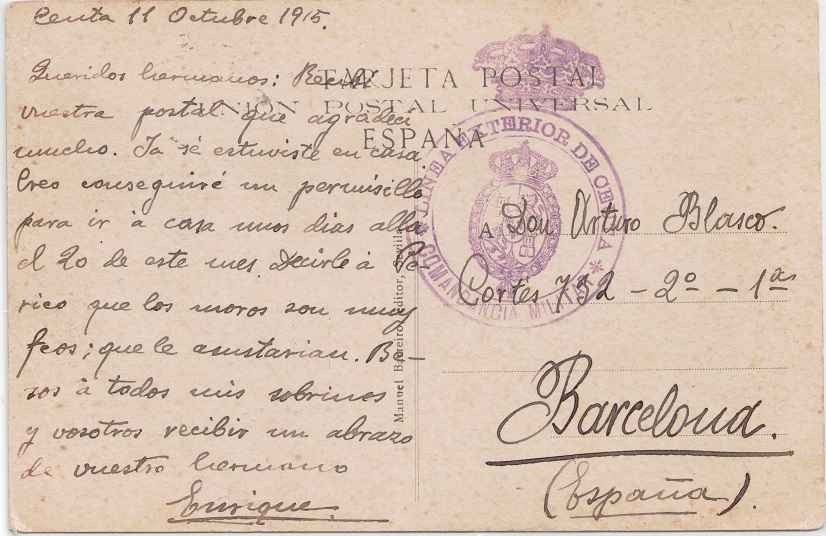 Ceuta 11 Octubre 1915.
Queridos hermanos: Recibí
vuestra postal que agradecí
mucho. Ya sé estuviste en casa.
Creo conseguiré un permisillo
para ir à casa unos dias alla
el 20 de este mes. Decirle à Pe-
rico que los moros son muy
feos; que le asustarian. Be-
sos à todos mis sobrinos
y vosotros recibir un abrazo
de vuestro hermano
Enrique.
TARJETA POSTAL
UNION POSTAL UNIVERSAL
ESPAÑA
LINEA EXTERIOR DE CEUTA
COMANDANCIA MILITAR
Manuel Barreiro, Editor, Sevilla
A Don Arturo Blasco.
Cortes 732 - 2º - 1ª
Barcelona.
(España).
1000